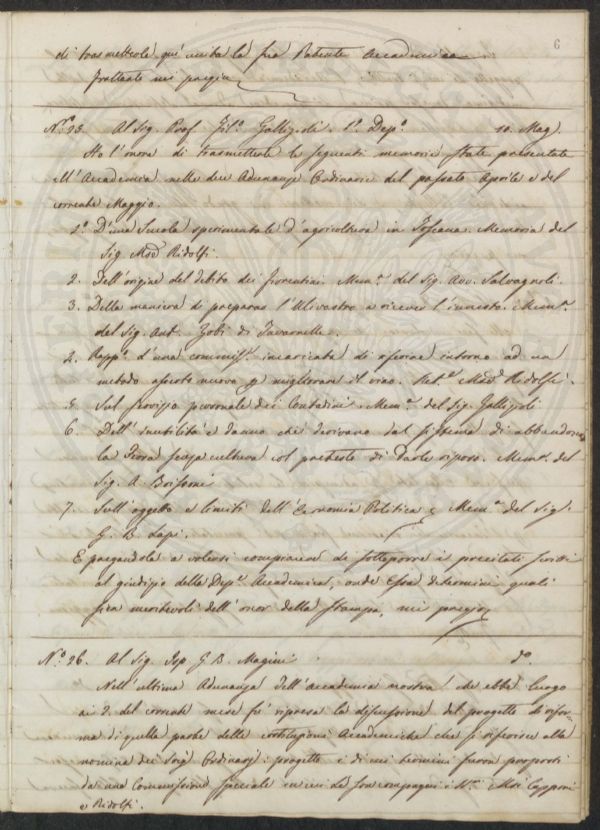 6
di trasmettole quì unita la sua Patente Accademica
frattanto mi pregio
N.º 25. Al Sig. Prof. Gallizioli. 1.º Dep.º 10. Mag.
Ho l'onore di trasmetterle le seguenti memorie state presentate
all'Accademia nelle due Adunanze Ordinarie del passato Aprile e del
corrente Maggio.
1.º D'una Scuola sperimentale d'agricoltura in Toscana. Memoria del
Sig. Ridolfi.
2. Dell'origine del debito dei fiorentini. Mem.ª del Sig. Avv. Salvagnoli.
3. Della maniera di preparare l'Ulivastro a ricever l'innesto. Mem.ª
del Sig. Ant. Zobi di Tavarnelle.
4. Rapp.º d'una commiss.e incaricata di riferire intorno ad un
metodo asserto nuovo p migliorare il vino. Ridolfi.
5. Sul servizio personale dei Contadini. Mem.ª del Sig. Gallizioli
6. Dell'inutilità e danno che derivano dal sistema di abbandonare
la Terra senza cultura col pretesto di darle riposo. Mem.ª del
Sig. A.
7. Sull'oggetto e limiti dell'Economia Politica; Mem.ª del Sig.
G. B. Lapi.
E pregandola a volersi compiacere di sottoporre i precitati scritti
al giudizio della Dep.e Accademica, onde Essa determini quali
sien meritevoli dell'onor della stampa, mi pregio
N.º 26. Al Sig. Isp. G. B. Magini d.º
Nell'ultima Adunanza dell'accademia nostra che ebbe luogo
ai 2. del corrente mese fù ripresa la discussione del progetto di rifor-
ma di quella parte delle costituzioni Accademiche che si riferisce alla
nomina dei Socj Ordinarj: progetto i di cui termini furon proposti
da una Commissione speciale in cui Le fon compagni i Capponi
e Ridolfi.